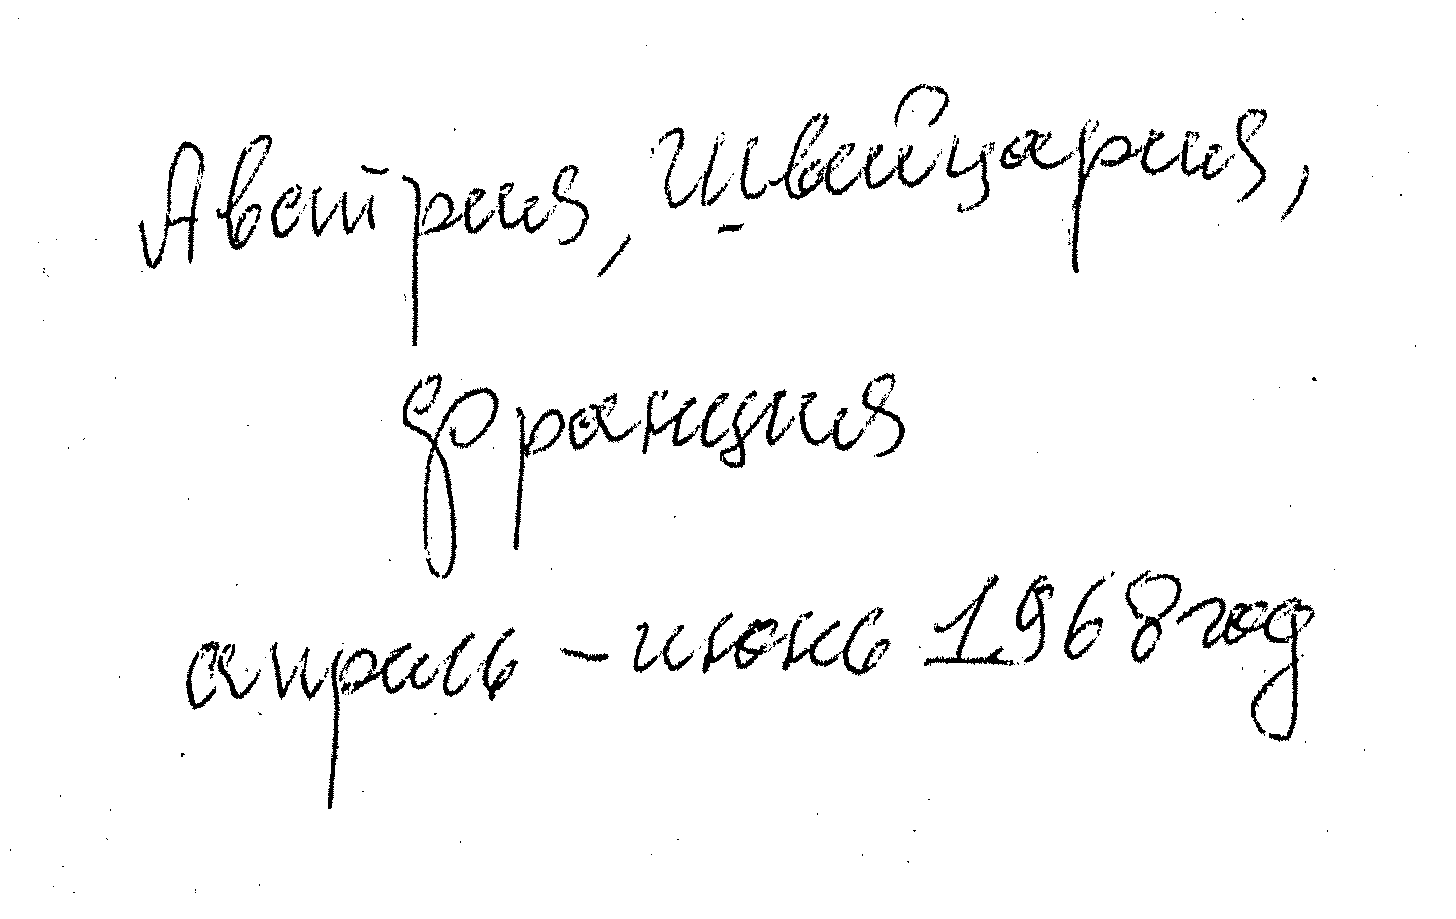 Австрия, Швейцария,
Франция
апрель – июнь 1968 год